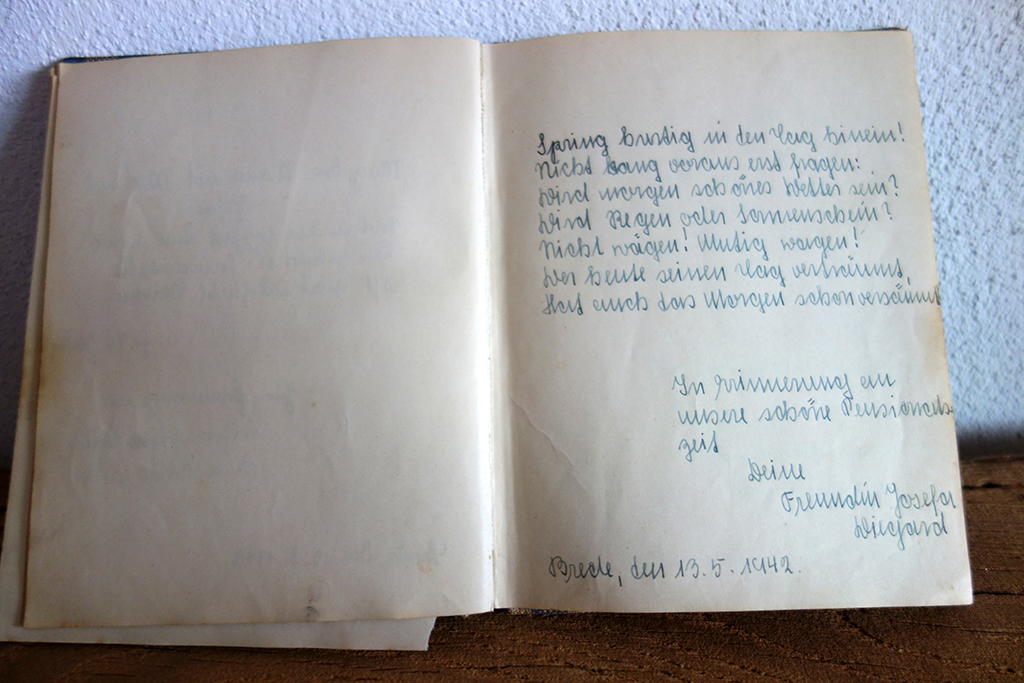 Spring lustig in den Tag hinein!
Nicht bang voraus erst fragen:
Wird morgen schönes Wetter sein?
Wird Regen oder Sonnenschein?
Nicht wägen! Mutig wagen!
Wer heute seinen Tag verträumt,
Hat auch das Morgen schon versäumt
In Erinnerung an
unsere schöne Pensionats-
zeit
Deine
Freundin Josefa
Wiegard
Brede, den 13. 5. 1942.